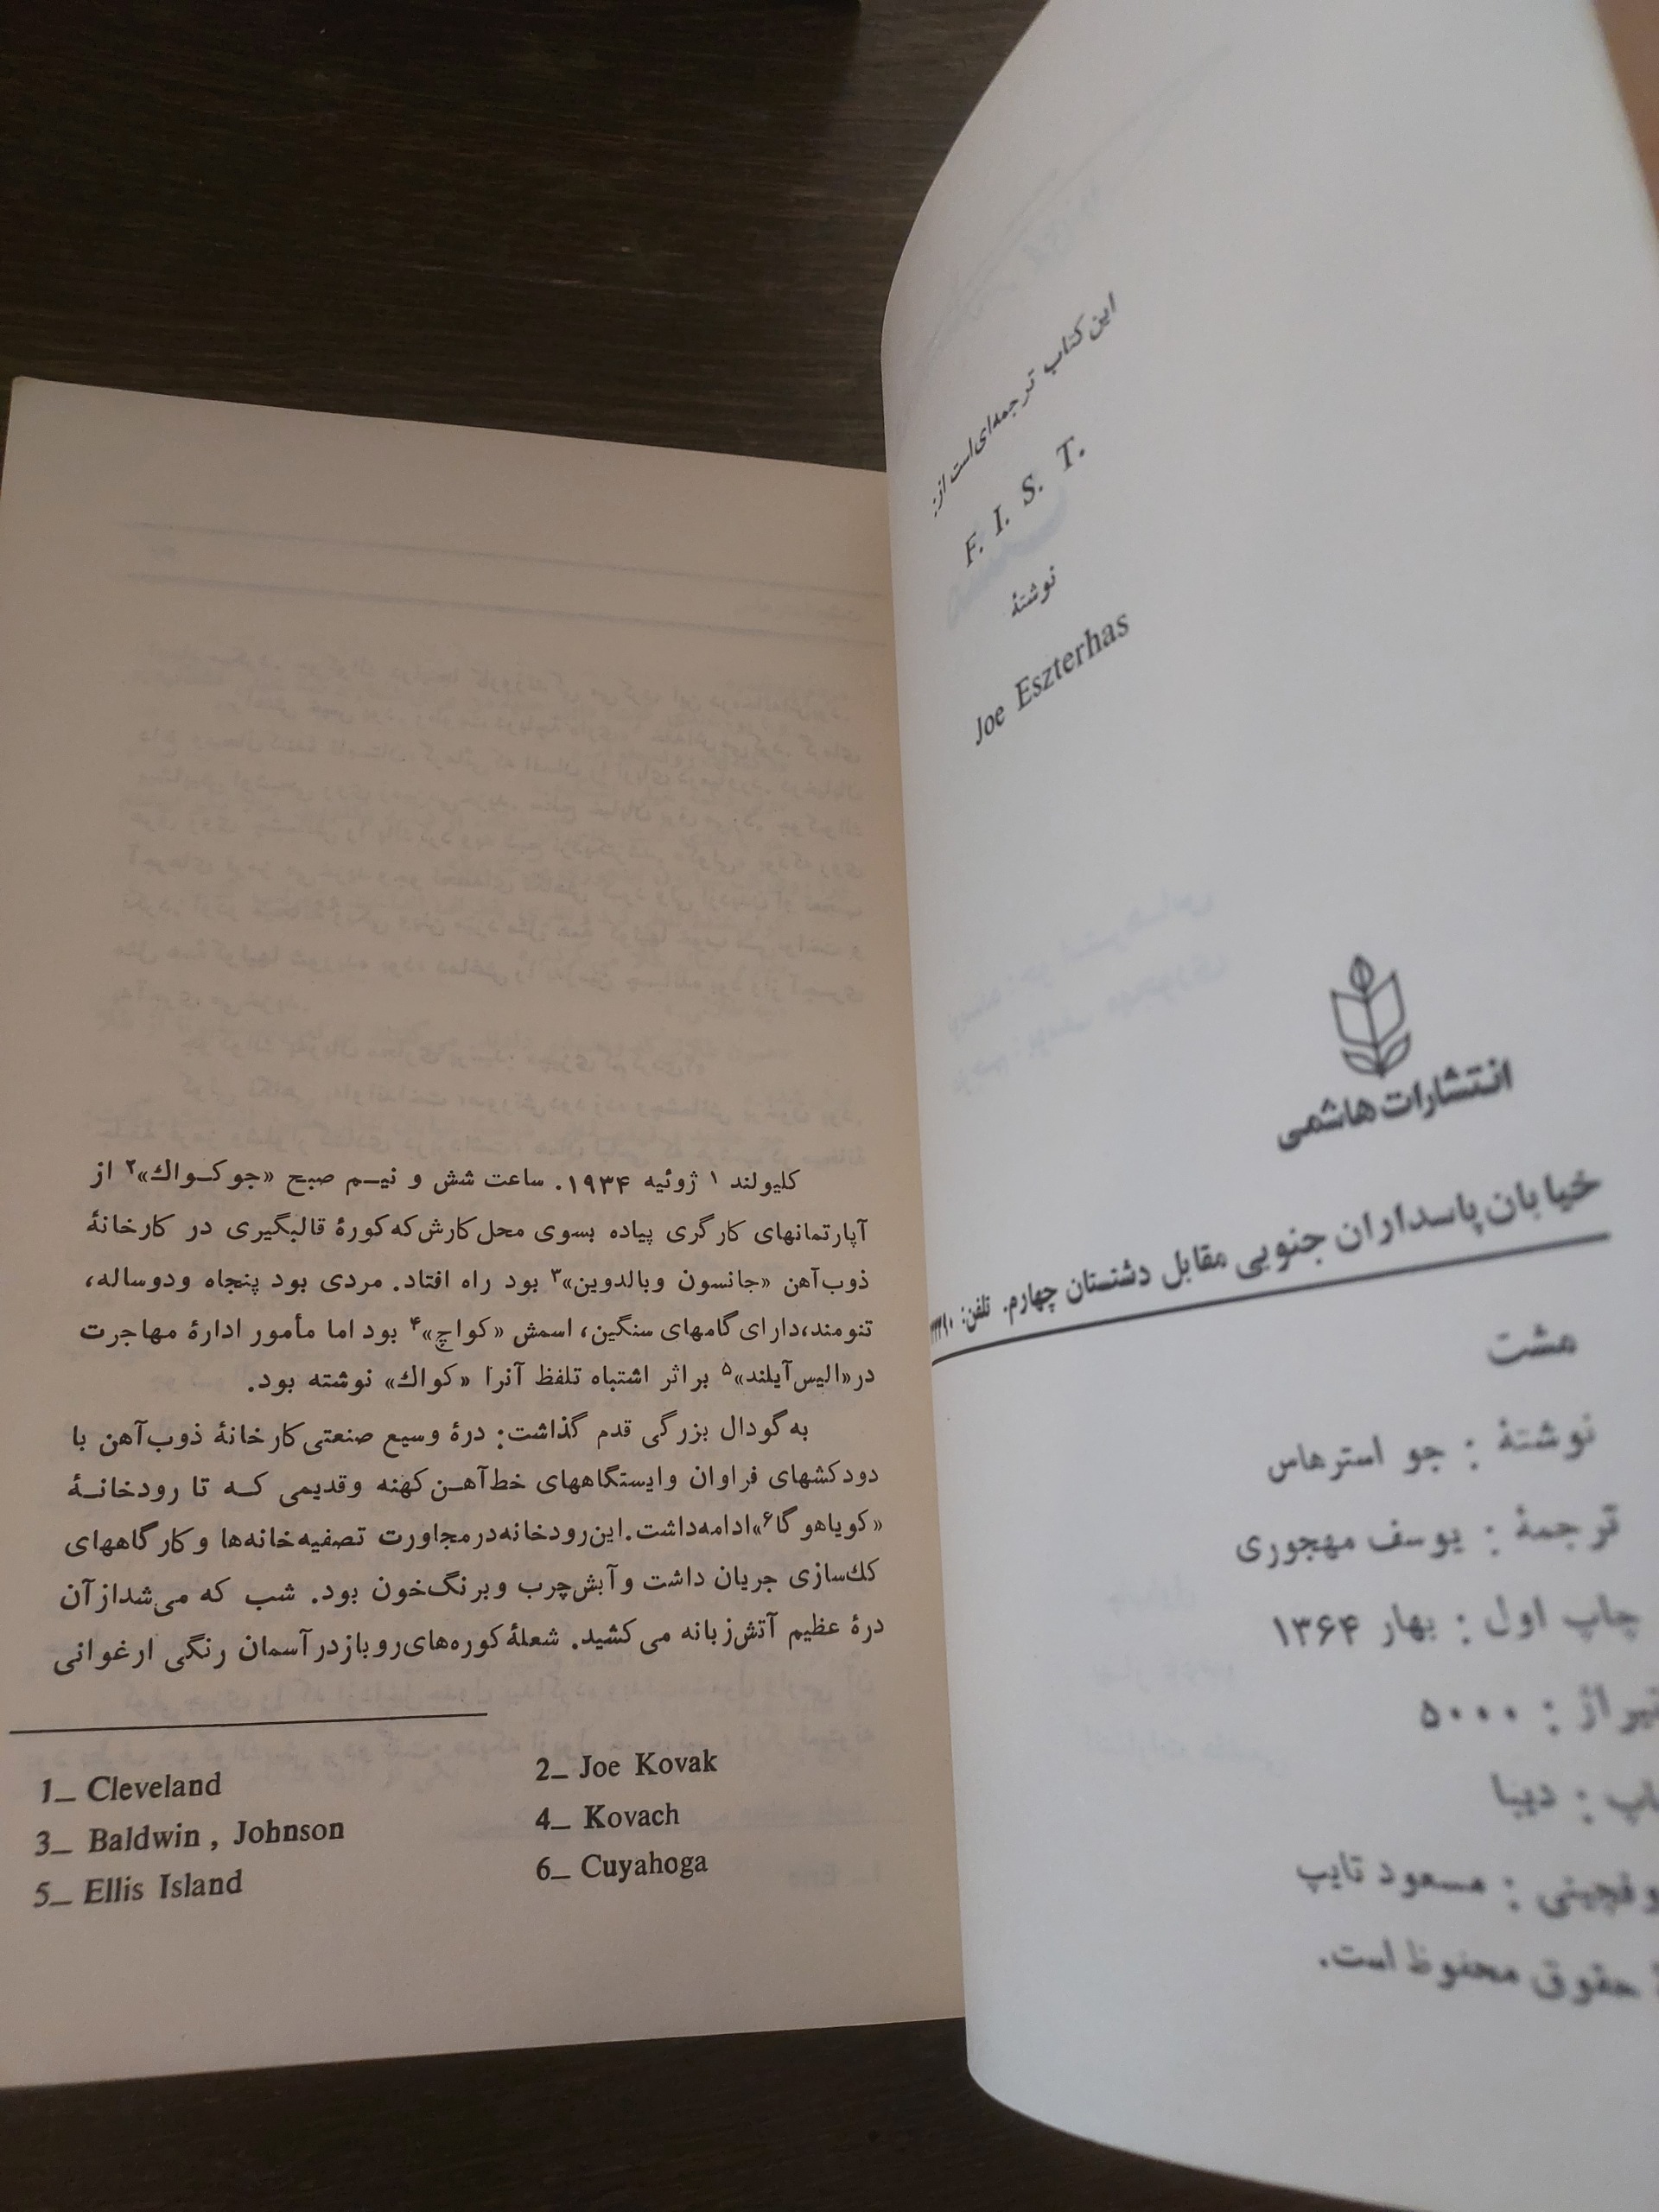 این کتاب ترجمه‌ای است از:
F. I. S. T.
نوشتهٔ
Joe Eszterhas
انتشارات هاشمی
خیابان پاسداران جنوبی مقابل دشتستان چهارم. تلفن:
مشت
نوشتهٔ : جو استرهاس
ترجمهٔ : یوسف مهجوری
چاپ اول : بهار ۱۳۶۴
تیراژ : ۵۰۰۰
: دیبا
: مسعود تایپ
حقوق محفوظ است.
کلیولند ۱ ژوئیه ۱۹۳۴. ساعت شش و نیـم صبح «جو کـواك»۲ از
آپارتمانهای کارگری پیاده بسوی محل کارش که کورهٔ قالبگیری در کارخانهٔ
ذوب‌آهن «جانسون وبالدوین»۳ بود راه افتاد. مردی بود پنجاه ودوساله،
تنومند، دارای گامهای سنگین، اسمش «کواچ»۴ بود اما مأمور ادارهٔ مهاجرت
در «الیس‌آیلند»۵ براثر اشتباه تلفظ آنرا «کواك» نوشته بود.
به گودال بزرگی قدم گذاشت: درهٔ وسیع صنعتی کارخانهٔ ذوب‌آهن با
دودکشهای فراوان وایستگاههای خط‌آهـن کهنه وقدیمی کـه تا رودخانـهٔ
«کویاهوگا۶» ادامه داشت. این رودخانه درمجاورت تصفیه‌خانه‌ها و کارگاههای
کك‌سازی جریان داشت و آبش چرب و برنگ خون بود. شب که می‌شد از آن
درهٔ عظیم آتش زبانه می‌کشید. شعلهٔ کوره‌های روباز در آسمان رنگی ارغوانی
1_ Cleveland 2_ Joe Kovak
3_ Baldwin , Johnson 4_ Kovach
5_ Ellis Island 6_ Cuyahoga